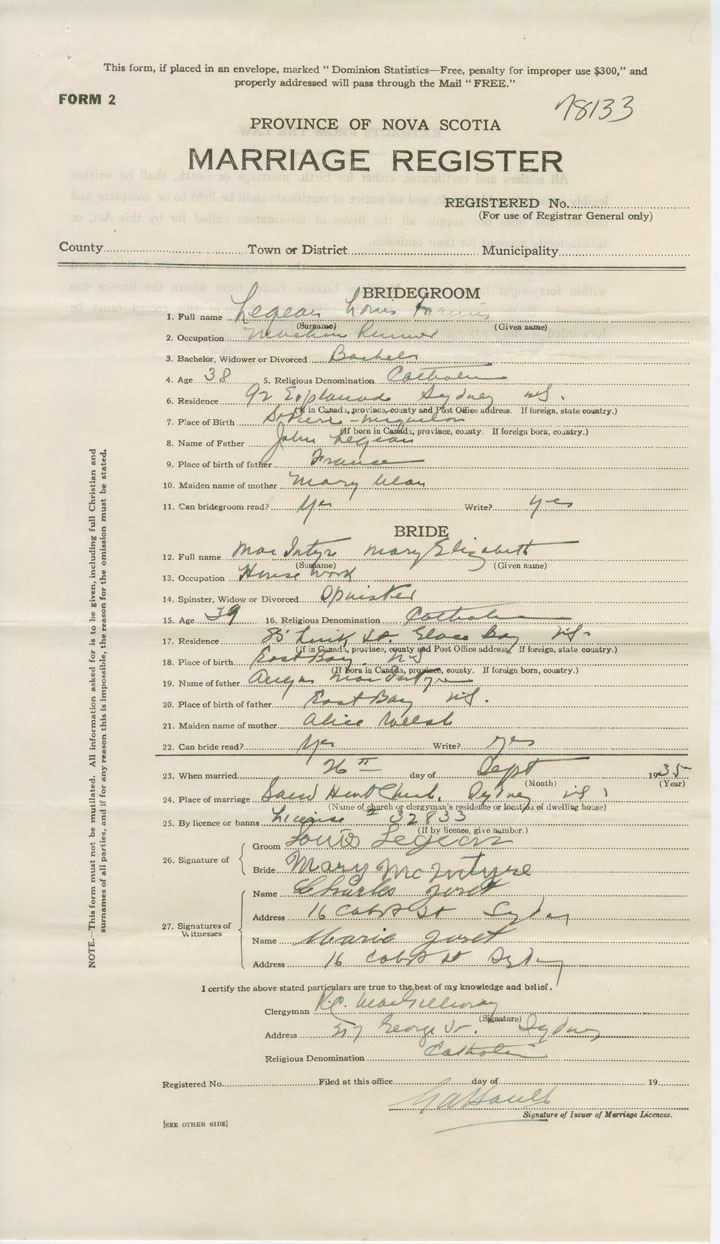 This form, if placed in an envelope, marked "Dominion Statistics—Free, penalty for improper use $300," and
properly addressed will pass through the Mail "FREE."
FORM 2
78133
PROVINCE OF NOVA SCOTIA
MARRIAGE REGISTER
REGISTERED No.
(For use of Registrar General only)
County Town or District Municipality
BRIDEGROOM
1. Full name Legean Louis
(Surname) (Given name)
2. Occupation
3. Bachelor, Widower or Divorced Bachelor
4. Age 38 5. Religious Denomination Catholic
6. Residence 92 Esplanade Sydney N.S.
(If in Canada, province, county and Post Office address. If foreign, state country.)
7. Place of Birth St Pierre - Miquelon
(If born in Canada, province, county. If foreign born, country.)
8. Name of Father John Legean
9. Place of birth of father France
10. Maiden name of mother Mary
11. Can bridegroom read? Yes Write? yes
BRIDE
12. Full name MacIntyre Mary Elizabeth
(Surname) (Given name)
13. Occupation House work
14. Spinster, Widow or Divorced Spinster
15. Age 39 16. Religious Denomination Catholic
17. Residence 85 St. Glace Bay N.S.
(If in Canada, province, county and Post Office address. If foreign, state country.)
18. Place of birth East Bay N.S
(If born in Canada, province, county. If foreign born, country.)
19. Name of father Angus MacIntyre
20. Place of birth of father East Bay N.S.
21. Maiden name of mother Alice Welsh
22. Can bride read? Yes Write? yes
23. When married 26th day of Sept 1935
(Month) (Year)
24. Place of marriage Sacred Heart Church, Sydney N.S.
(Name of church or clergyman's residence or location of dwelling house)
25. By licence or banns License # 32833
(If by licence, give number.)
26. Signature of
Groom Louis Legean
Bride Mary McIntyre
27. Signatures of Witnesses
Name Charles
Address 16 St Sydney
Name Marie
Address 16 St Sydney
I certify the above stated particulars are true to the best of my knowledge and belief.
Clergyman R.C. MacGillivray
(Signature)
Address George St. Sydney
Religious Denomination Catholic
Registered No. Filed at this office day of 19
Signature of Issuer of Marriage Licences.
[SEE OTHER SIDE]
NOTE.—This form must not be mutilated. All information asked for is to be given, including full Christian and
surnames of all parties, and if for any reason this is impossible, the reason for the omission must be stated.